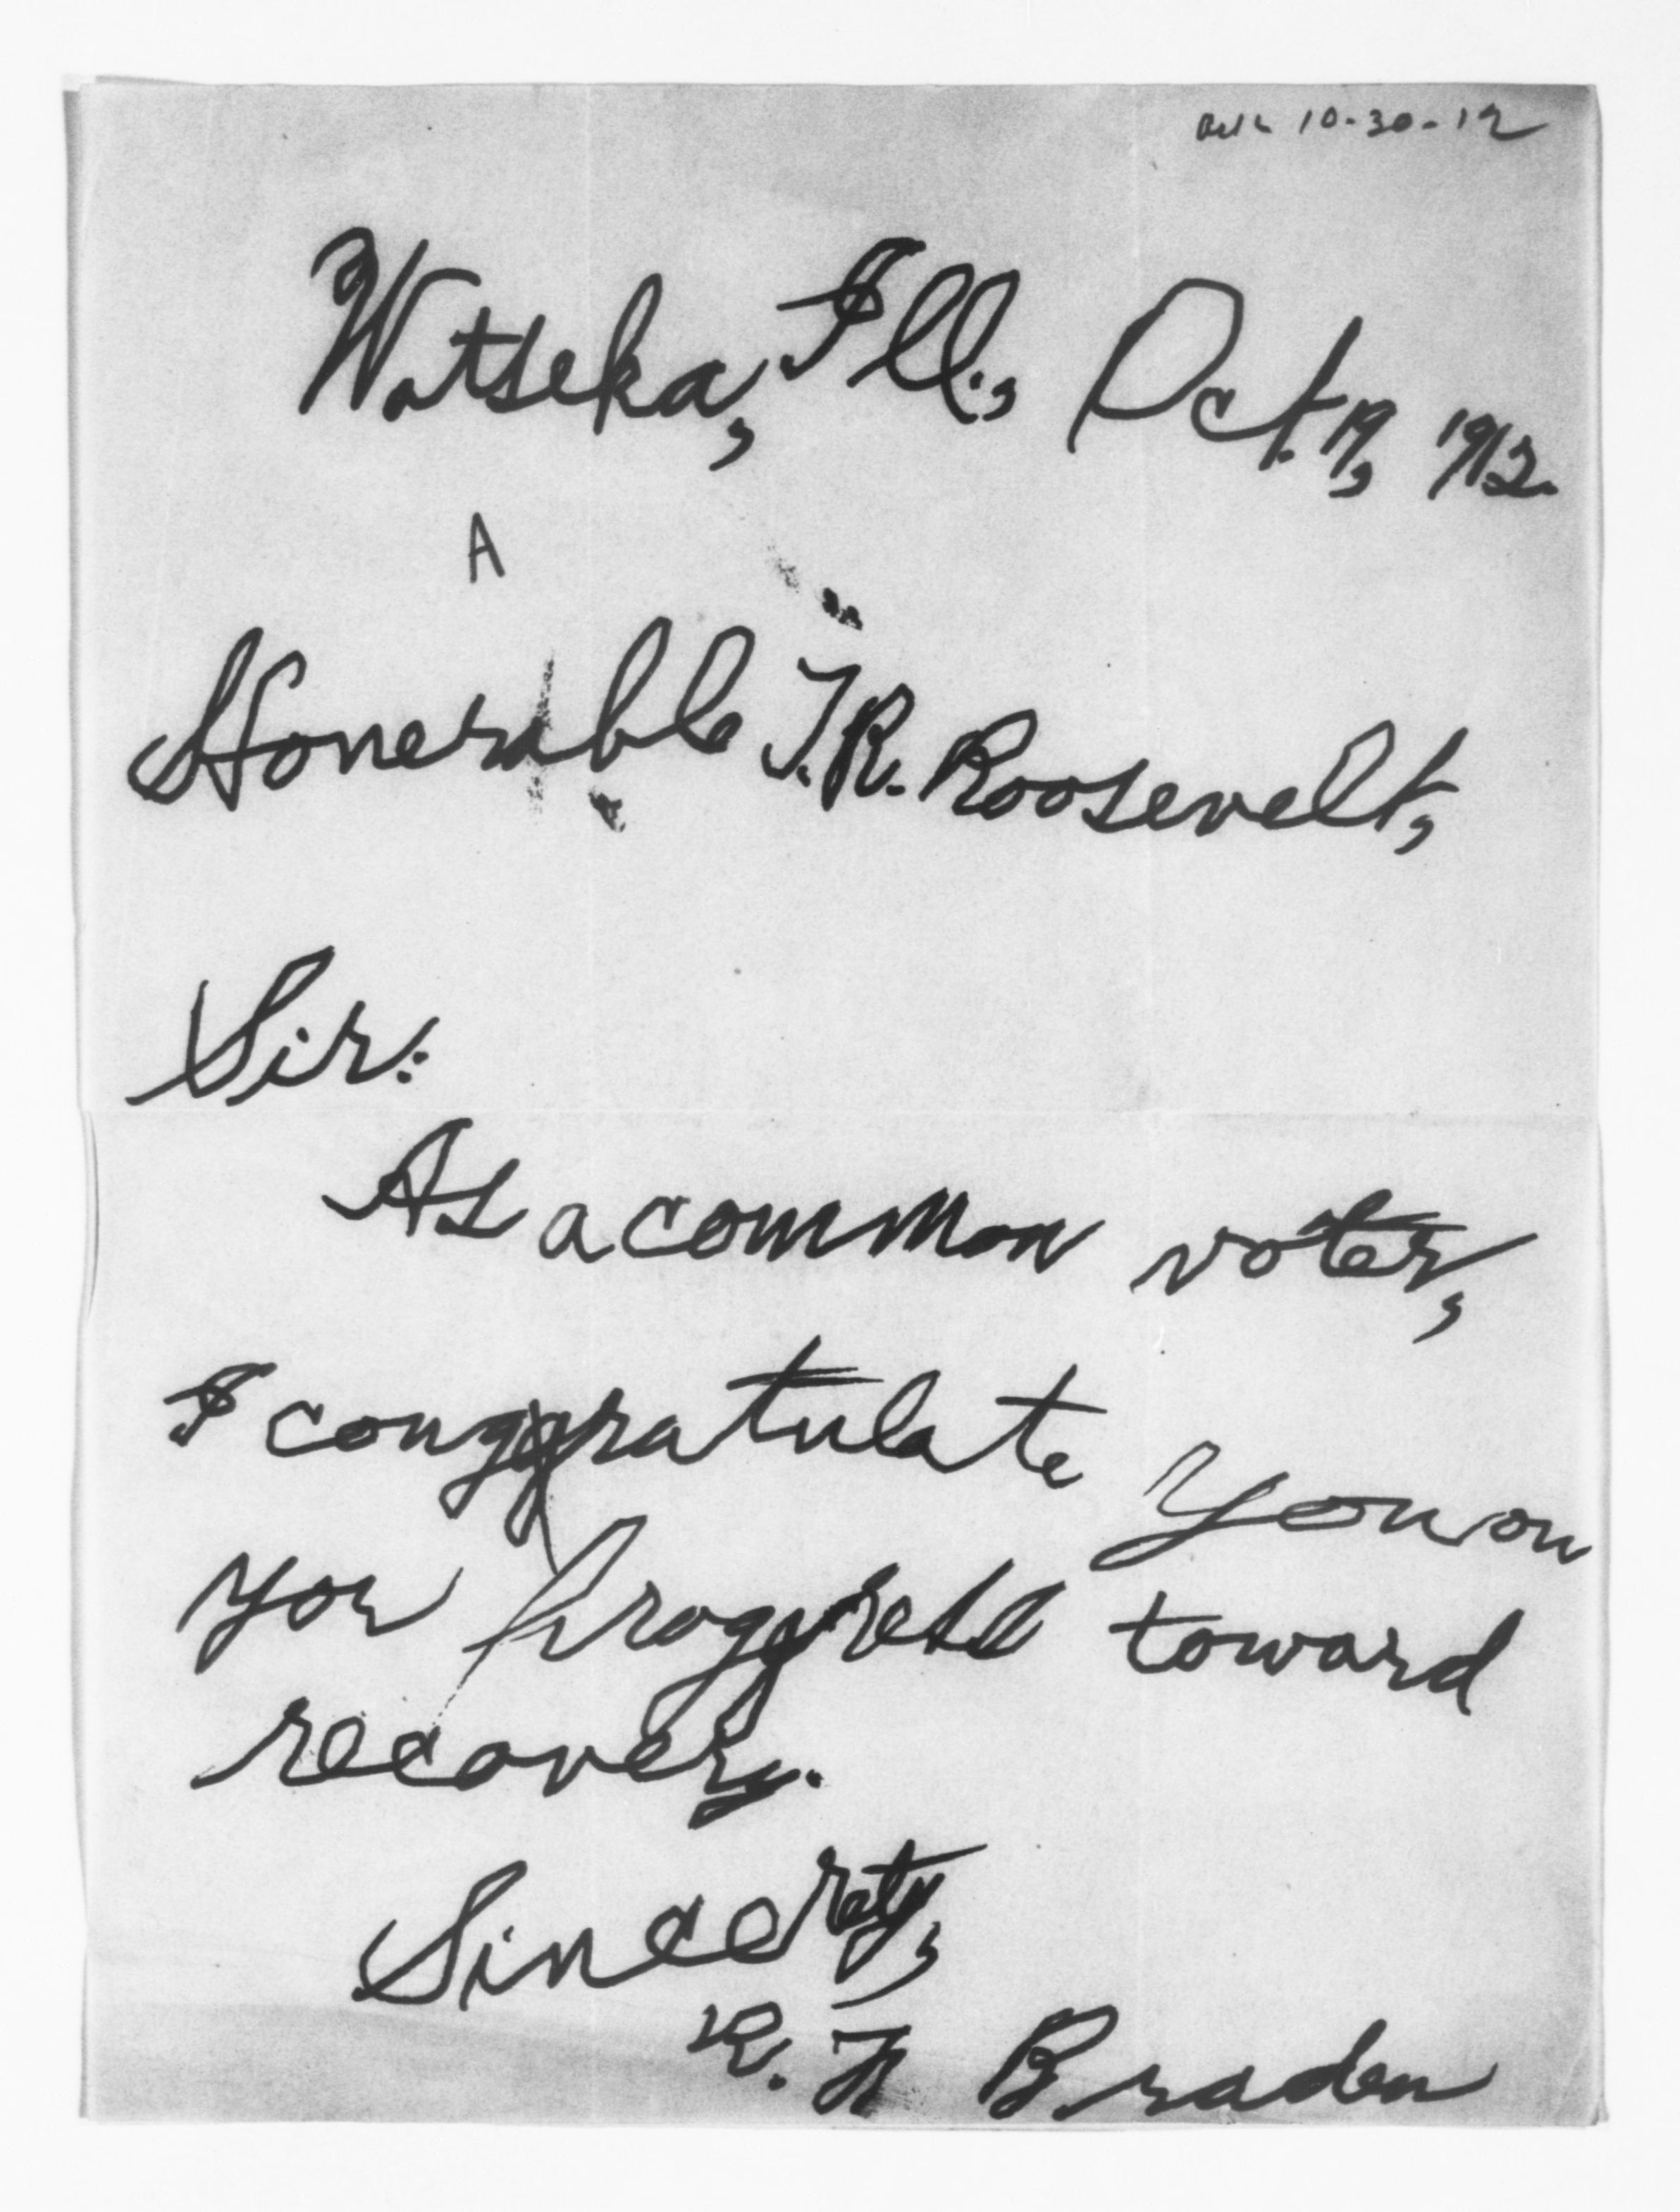 10-30-12
Watseka, Ill., Oct. 19, 1912.
A
Honerable T.R. Roosevelt,
Sir:
As a common voter,
I conggratulate you on
you proggress toward
recovery.
Sincerety,
R. Braden